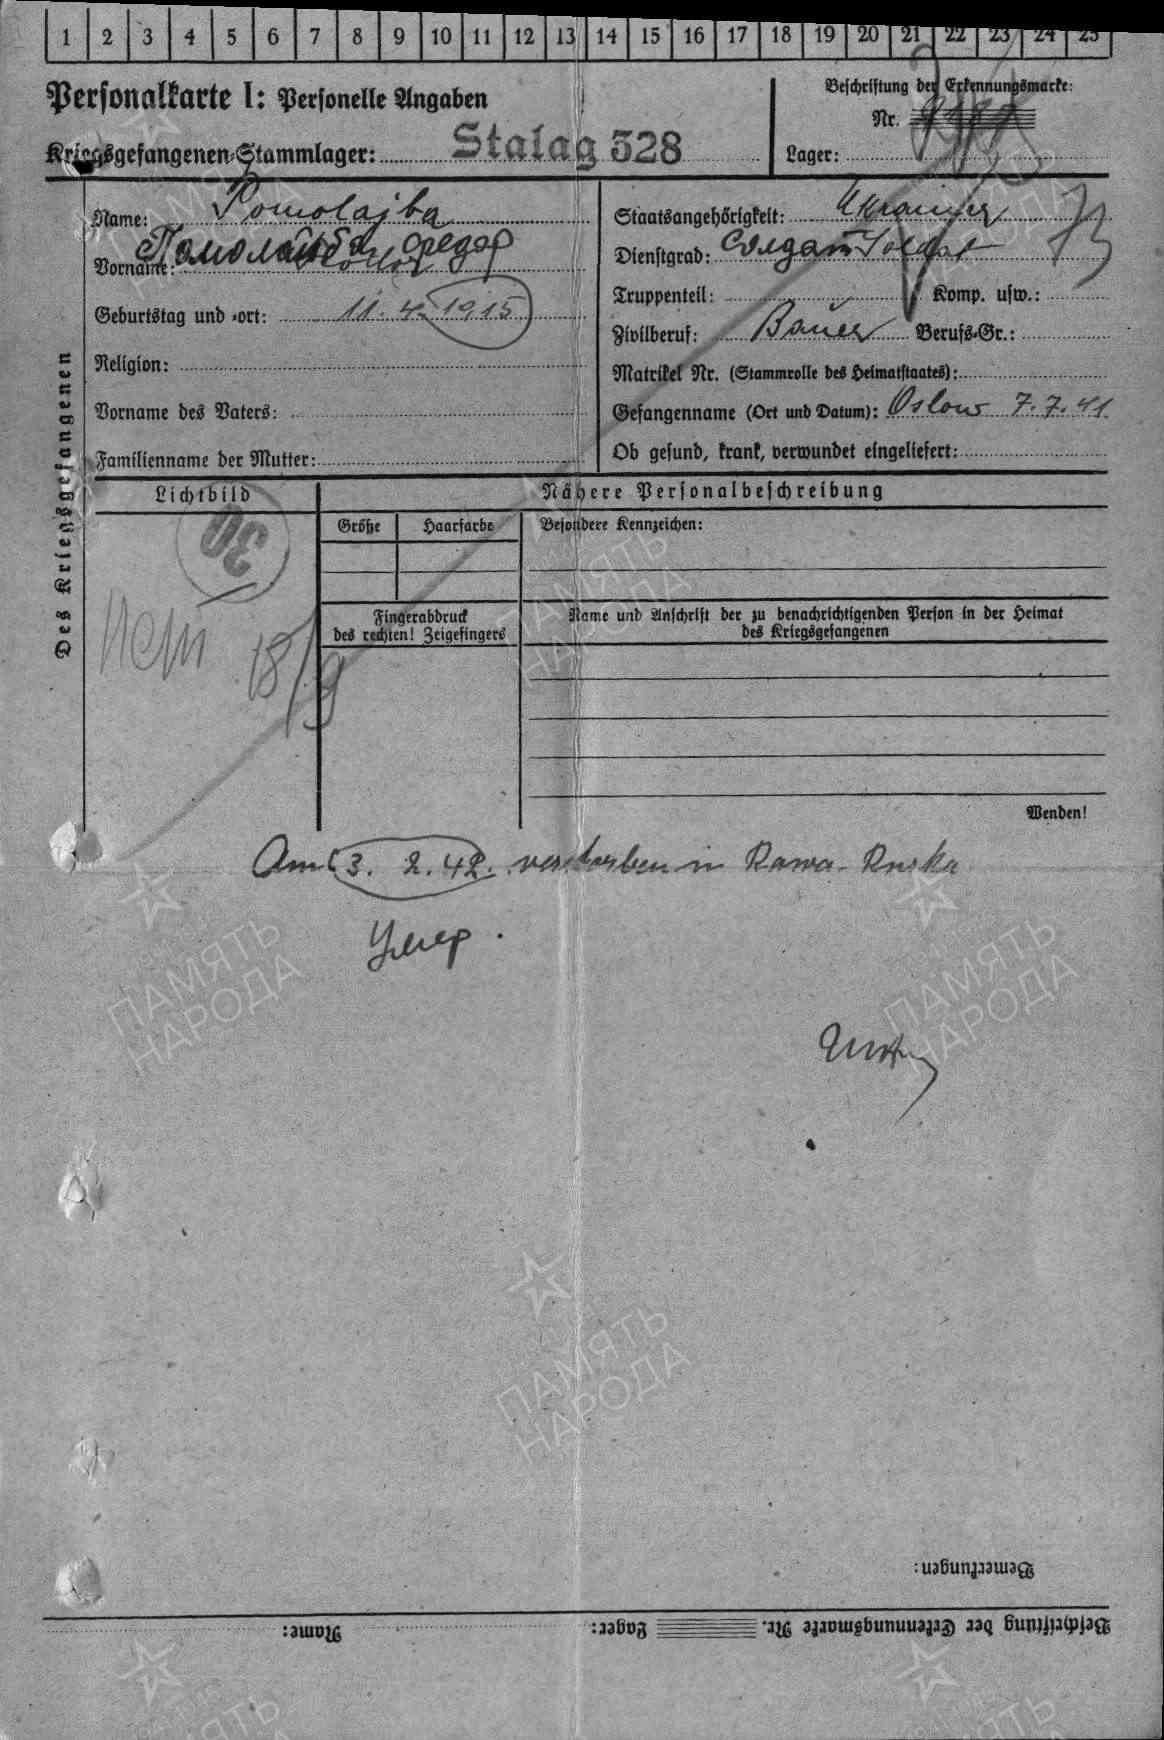 1 2 3 4 5 6 7 8 9 10 11 12 13 14 15 16 17 18 19 20 21 22 23 24 25
Personalkarte I: Personelle Angaben
Beschriftung der Erkennungsmarke:
Nr.
Kriegsgefangenen-Stammlager: Stalag 328
Lager:
Des Kriegsgefangenen
Name: Pomolajba
Помолайба Федор
Vorname:
Geburtstag und -ort: 11. 4. 1915
Religion:
Vorname des Vaters:
Familienname der Mutter:
Staatsangehörigkeit: Ukrainer
Dienstgrad: Солдат Soldat
Truppenteil: Komp. usw.:
Zivilberuf: Bauer Berufs-Gr.:
Matrikel Nr. (Stammrolle des Heimatstaates):
Gefangenname (Ort und Datum): Oslow 7.7.41
Ob gesund, krank, verwundet eingeliefert:
Lichtbild
30
18/9
Nähere Personalbeschreibung
Größe Haarfarbe Besondere Kennzeichen:
Fingerabdruck
des rechten! Zeigefingers
Name und Anschrift der zu benachrichtigenden Person in der Heimat
des Kriegsgefangenen
Wenden!
Am 3. 2. 42. verstorben in Rawa-Ruska
Умер.
Bemerkungen:
Beschriftung der Erkennungsmarke Nr. Lager: Name:
ПАМЯТЬ
НАРОДА